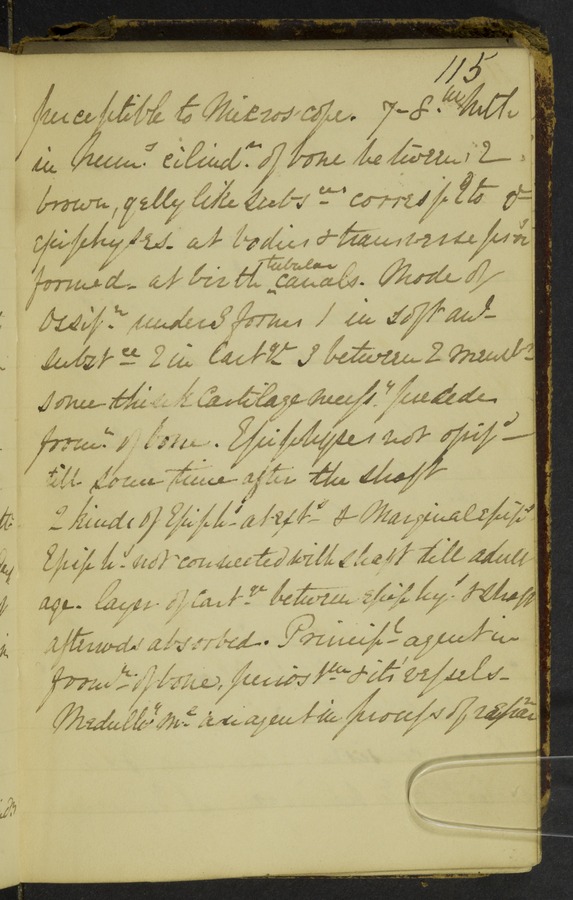 115
perceptible to Microscope. 7-8.th Mth
in hum.s cilind.r of bone between 2
brown, gelly like subs.ces corresp.d to
epiphyses - at bodies & transverse
formed - at birth tubular canals. Mode of
Ossif.n under 3 forms 1 in soft
subst.ce 2 in Cart.ge 3 between 2 memb.s
some think Cartilage necess.y precedes
from.n of bone. Epiphyses not ossif.d
till some time after the shaft
2 kinds of Epiph.s at ext.s & Marginal epip.s
Epiph.s not connected with shaft till adult
age. layer of Cart.ge between epiphy.s & shaft
afterwds absorbed. Princip.l agent in
from.n of bone, perios.tm & its vessels -
Medull.y m.e is agent in process of